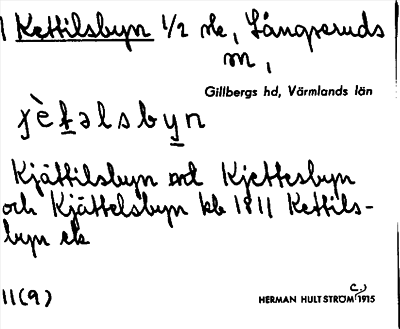 1 Kettilsbyn 1/2 mle, Långseruds
sn,
Gillbergs hd, Värmlands län
Kjättilsbyn ord Kjettesbyn
och Kjättelsbyn kb 1811 Kettils-
byn eb
11(9)
HERMAN HULTSTRÖM C.) 1915